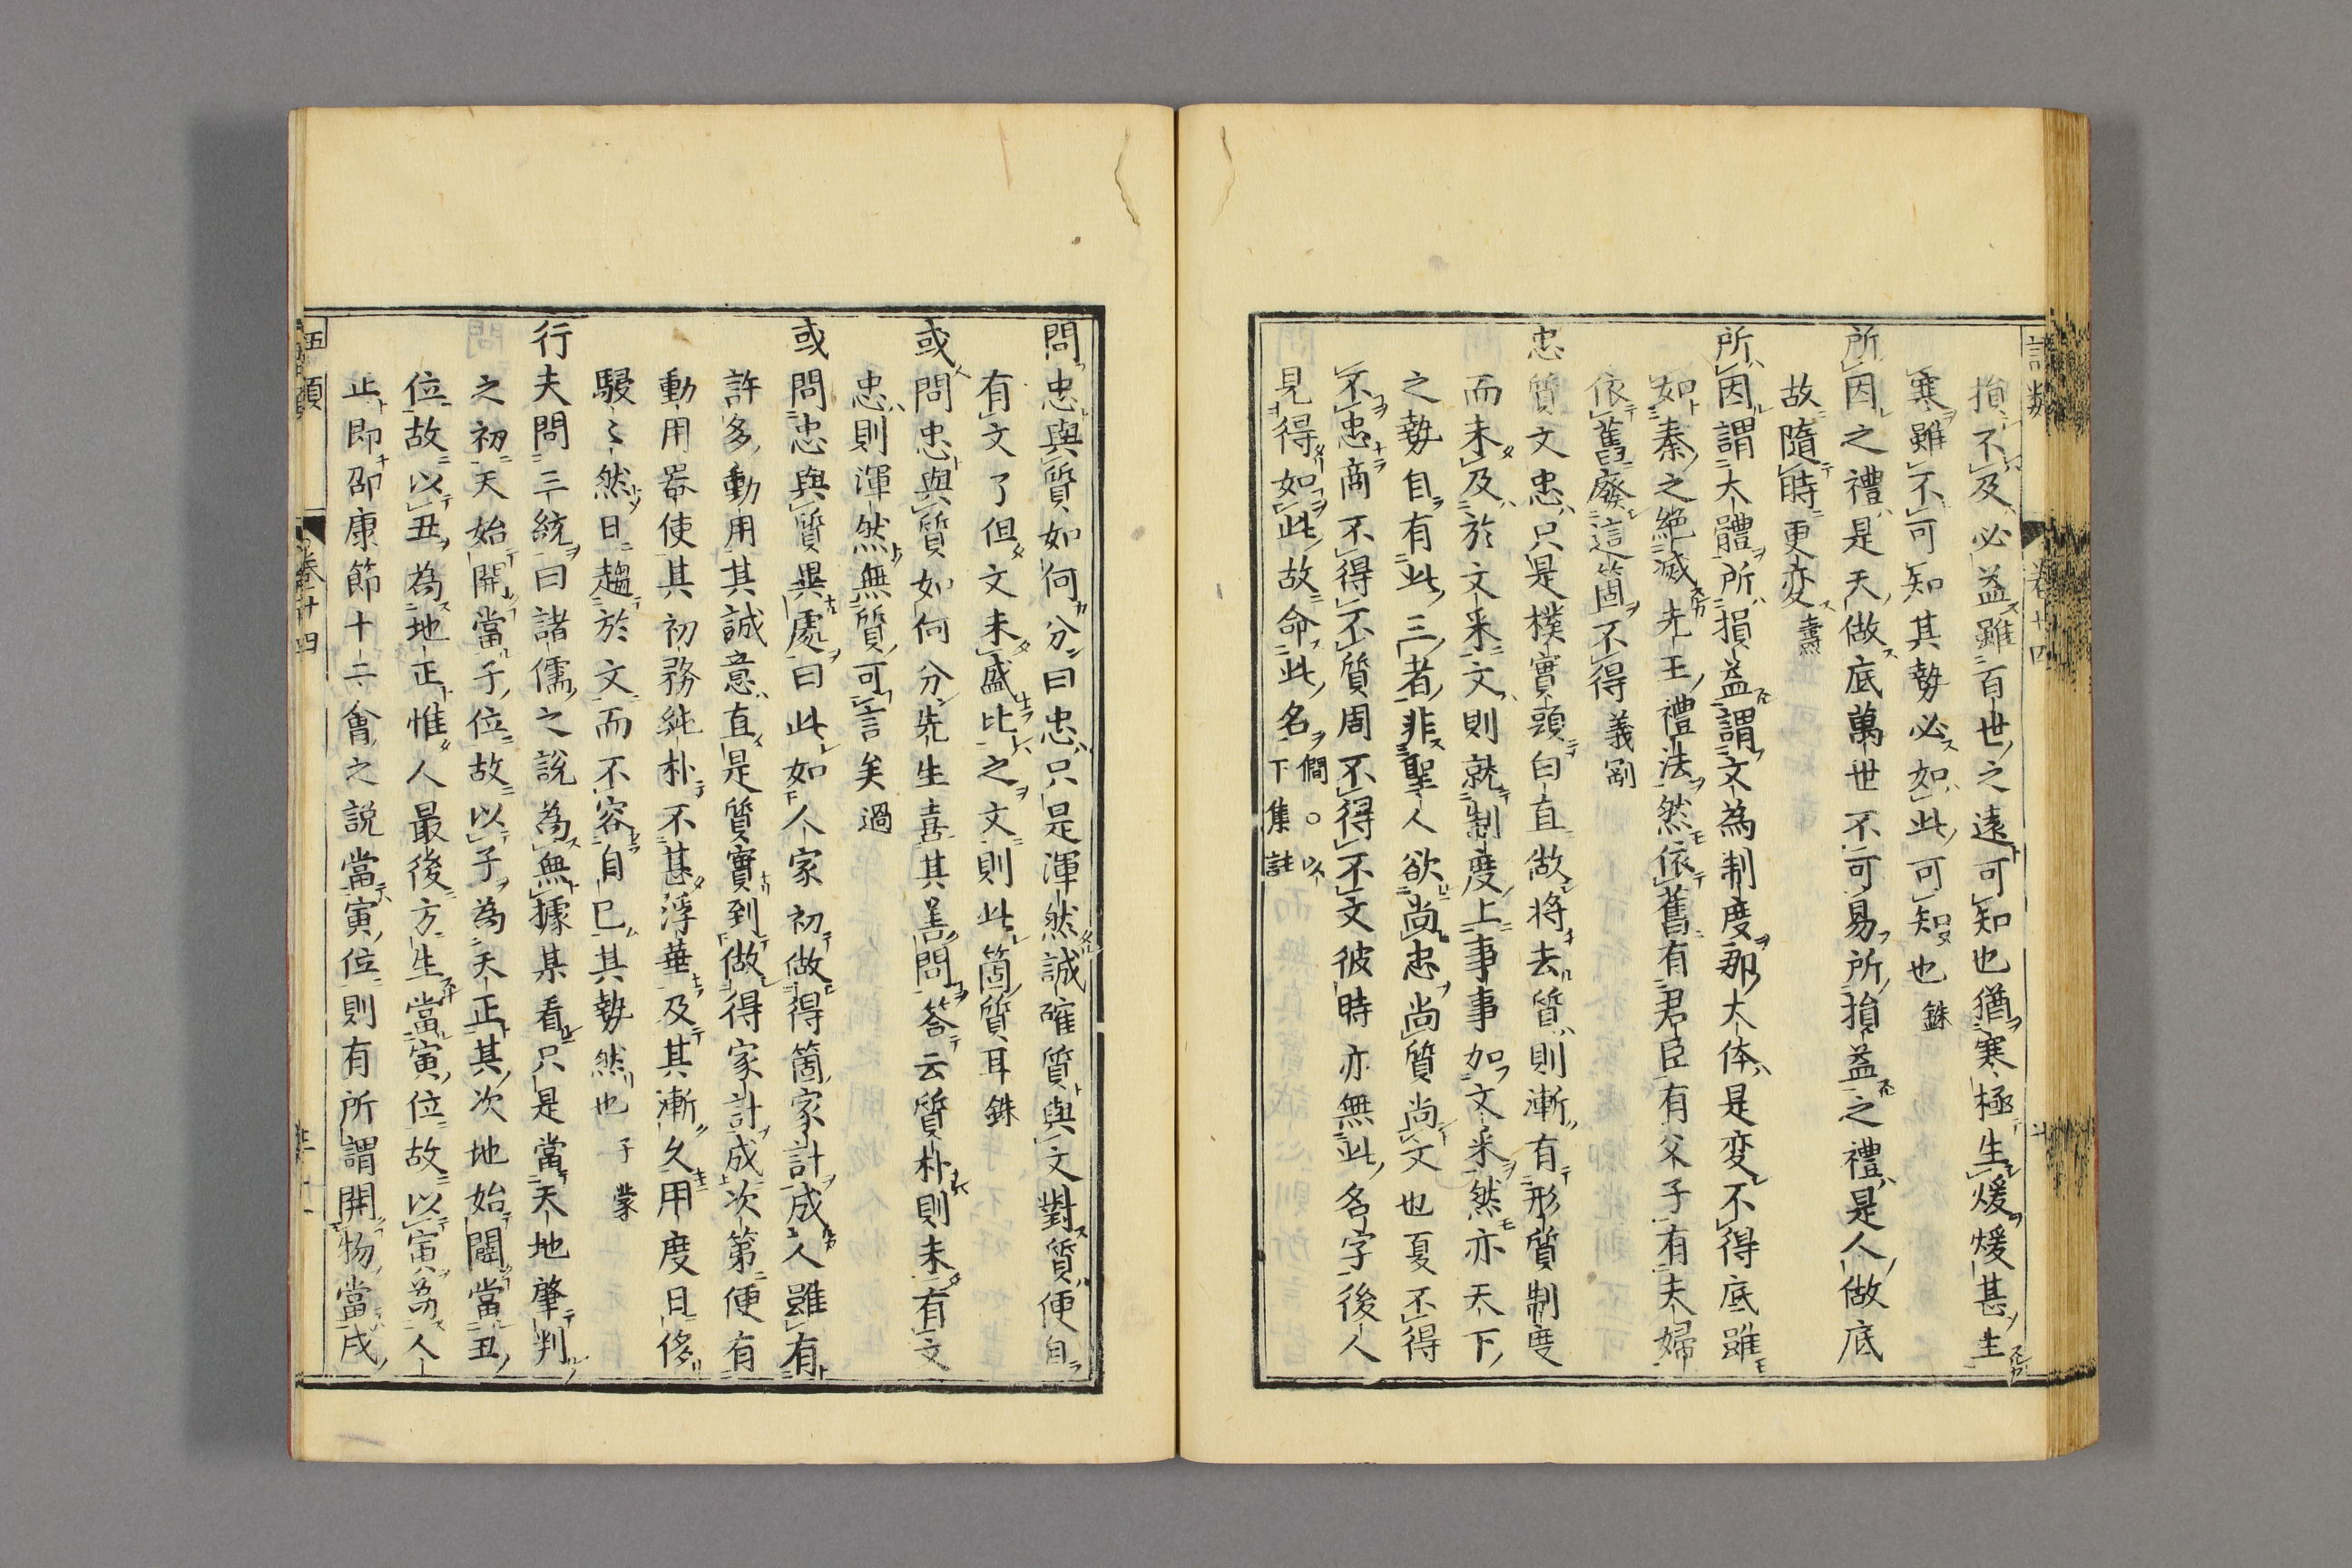 損不及必益雖百世之遠可知也猶寒極生煖煖甚生
寒雖不可知其勢必如此可知也 銖
所因之禮是天做底萬世不可易所損益之禮是人做底
故隨時更変 燾
所因謂大體所損益謂文為制度那大体是変不得底雖
如秦之絶滅先王禮法然依舊有君臣有父子有夫婦
依舊廢這箇不得 義剛
忠質文忠只是樸實頭白直做将去質則漸有形質制度
而未及於文采文則就制度上事事加文采然亦天下
之勢自有此三者非聖人欲尚忠尚質尚文也夏不得
不忠商不得不質周不得不文彼時亦無此名字後人
見得如此故命此名 僩○以下集註
問忠與質如何分曰忠只是渾然誠確質與文對質便自
有文了但文未盛比之文則此箇質耳 銖
或問忠與質如何分先生喜其善問答云質朴則未有文
忠則渾然無質可言矣 過
或問忠與質異處曰此如人家初做得箇家計成人雖有
許多動用其誠意直是質實到做得家計成次第便有
動用器使其初務純朴不甚浮華及其漸久用度日侈
駸〻然日趨於文而不容自已其勢然也 子蒙
行夫問三統曰諸儒之說為無據某看只是當天地肇判
之初天始開當子位故以子為天正其次地始闢當丑
位故以丑為地正惟人最後方生當寅位故以寅為人
正即邵康節十二會之説當寅位則有所謂開物當戌
卷十四